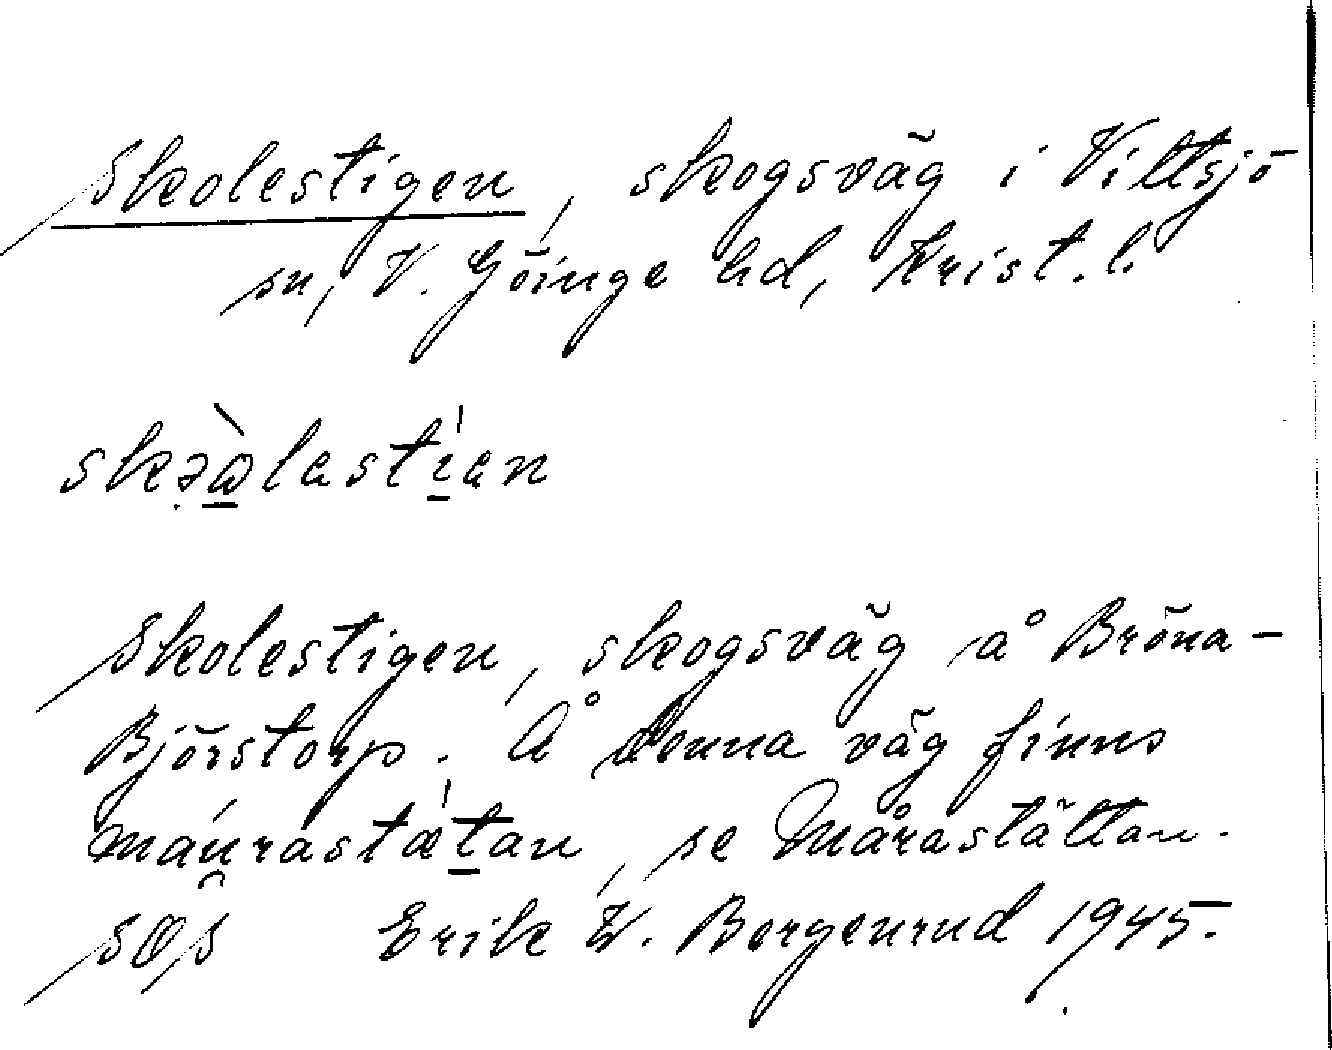 Skolestigen, skogsväg i Vittsjö
sn, V. Göinge hd, Krist. l.
skəωlestien
Skolestigen, skogsväg å Bröna-
Björstorp. Å denna väg finns
máurastætan, se Mårastättan.
SOS Erik W. Bergenrud 1945.